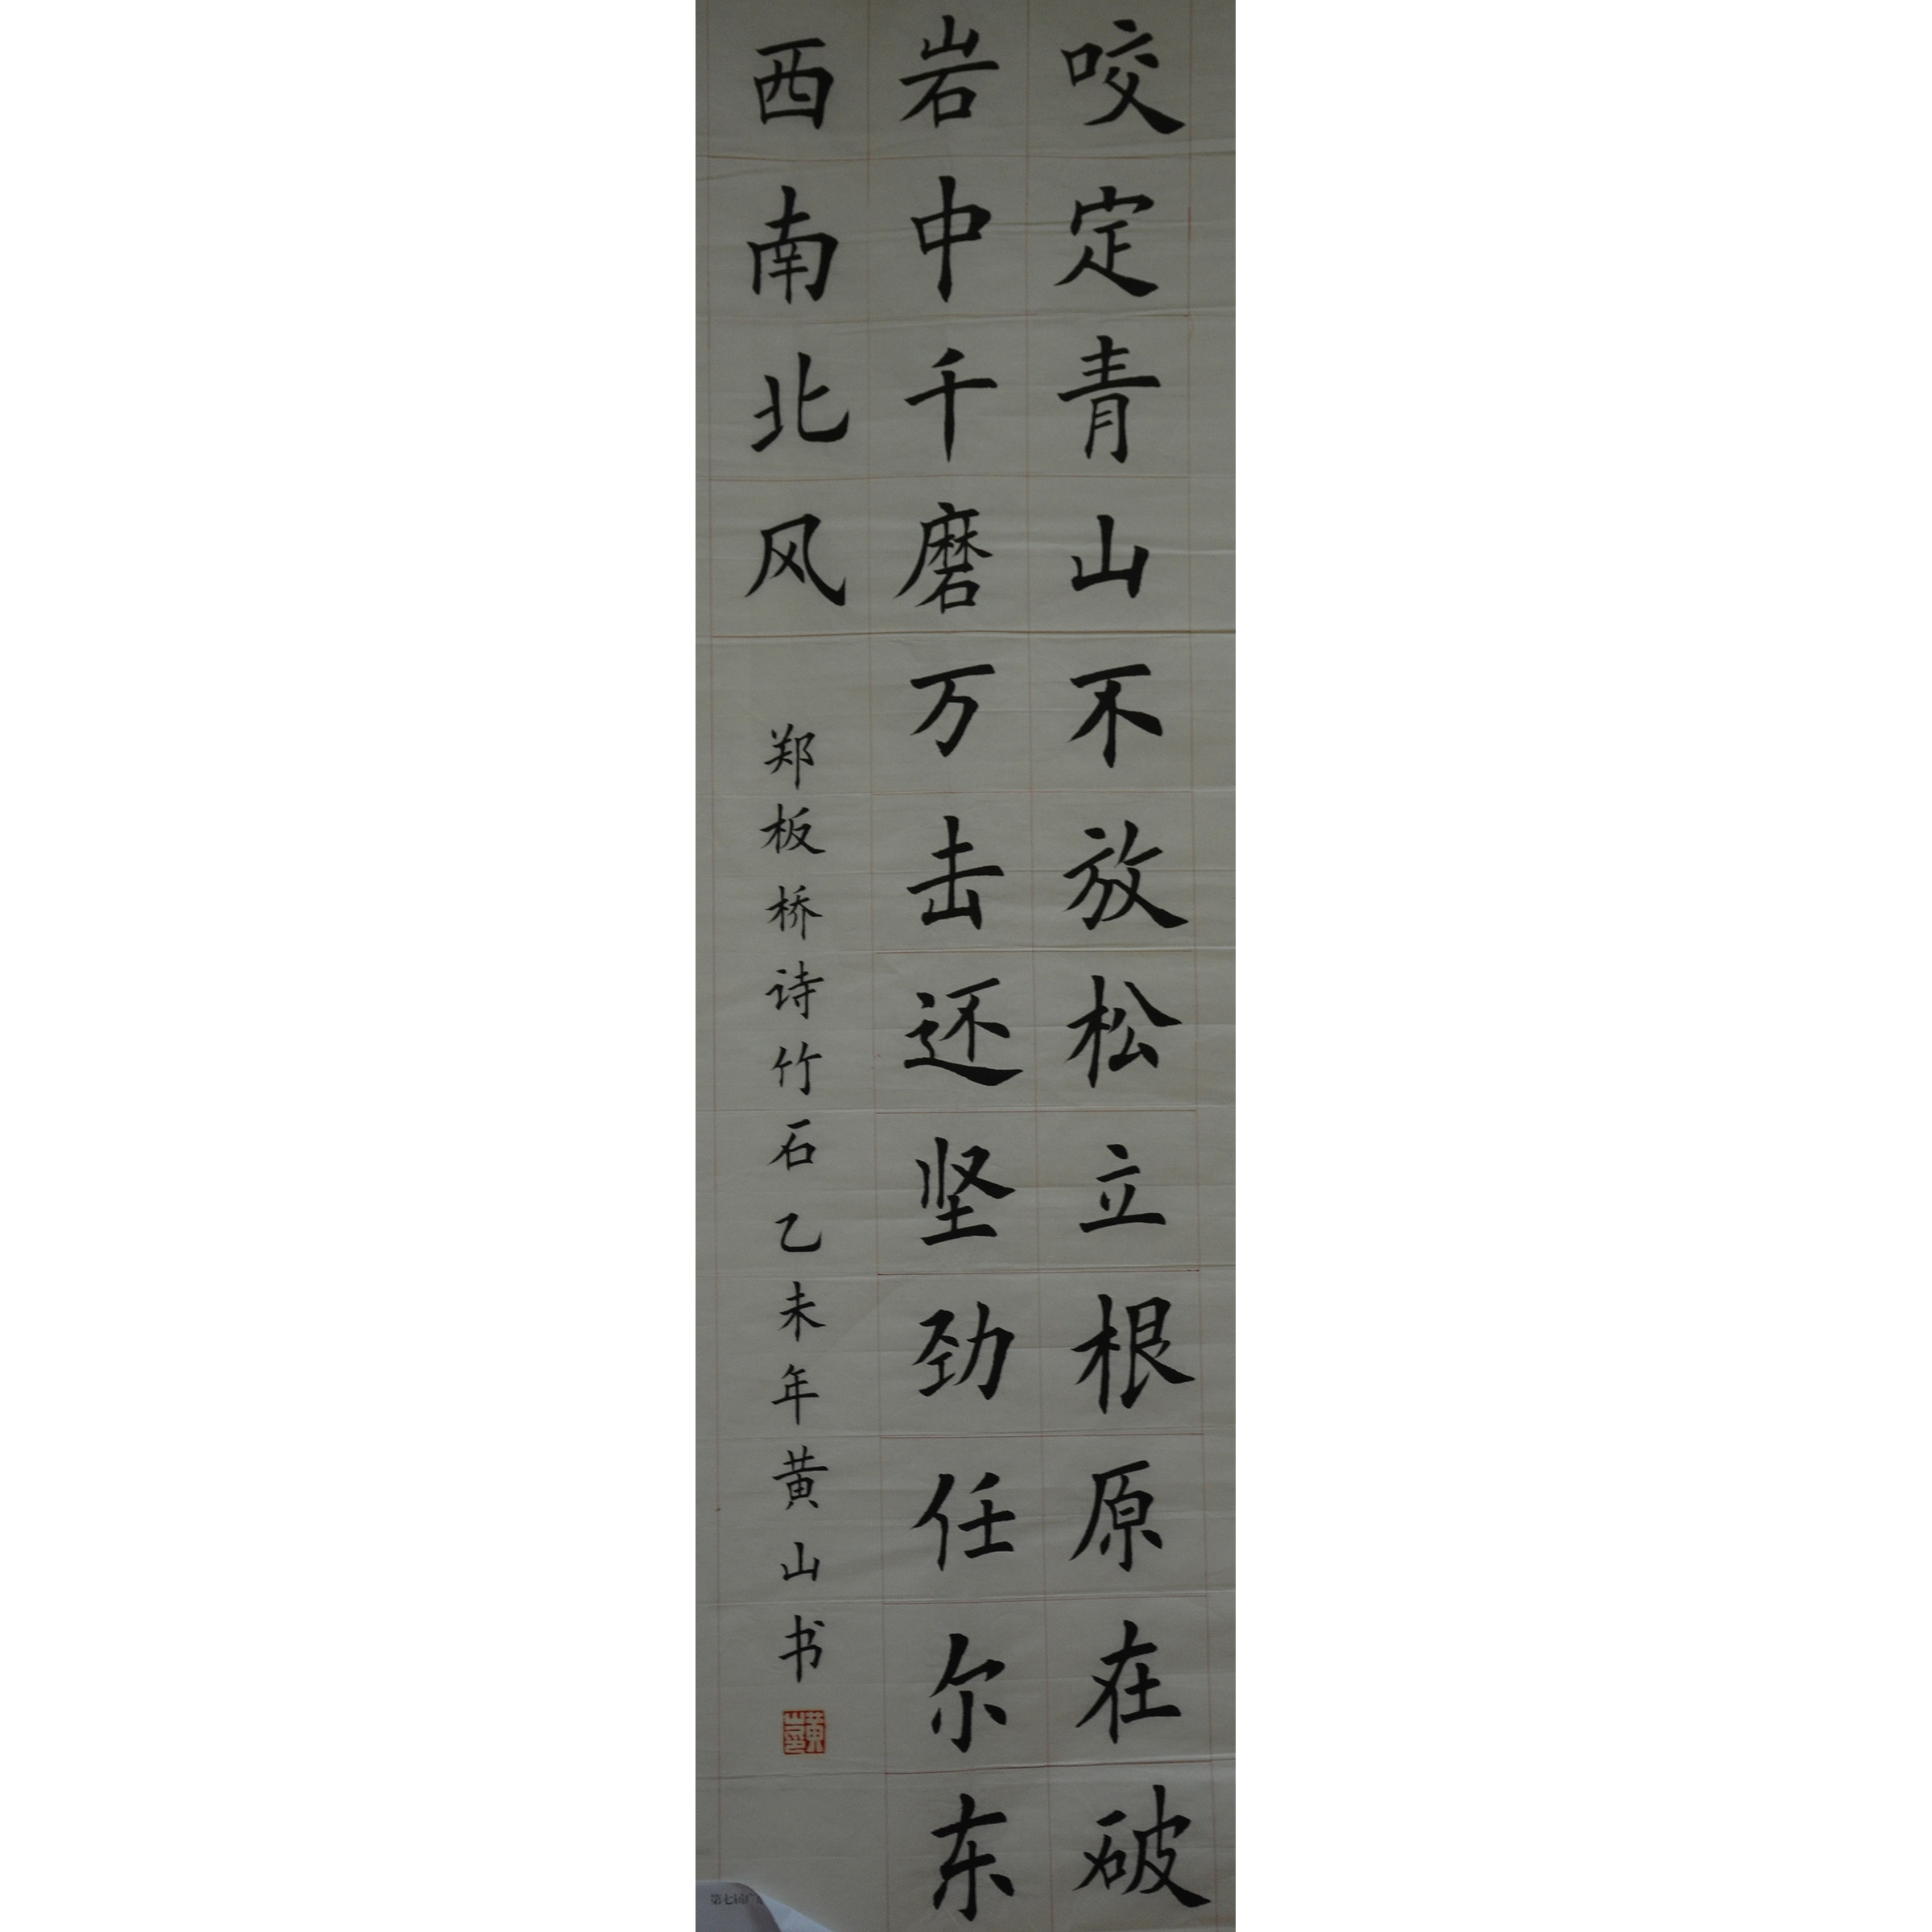 咬定青山不放松立根原在破
岩中千磨万击还坚劲任尔东
西南北风
郑板桥诗竹石乙未年黄山书
第七届广